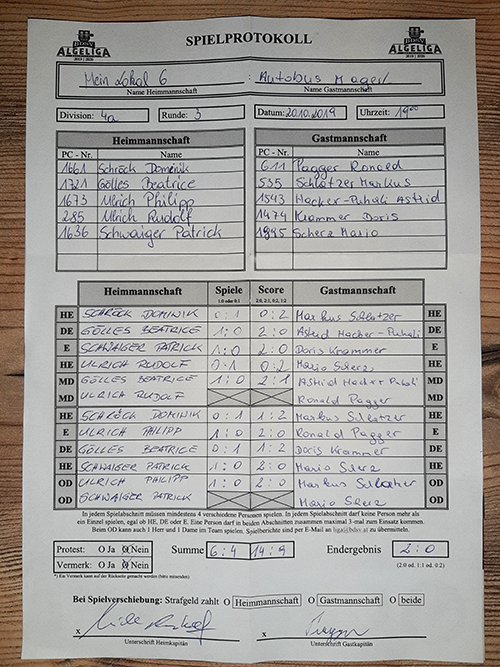 BDSV
ALGELIGA
2019 | 2020
SPIELPROTOKOLL
BDSV
ALGELIGA
2019 | 2020
Mein Lokal 6 : Autobus Mager
Name Heimmannschaft Name Gastmannschaft
Division: 4a Runde: 3 Datum: 20.10.2019 Uhrzeit: 19 00
Heimmannschaft Gastmannschaft
PC - Nr. Name PC - Nr. Name
1661 Schröck Dominik 611 Pagger Ronald
1721 Gölles Beatrice 535 Schlatzer Markus
1673 Ulrich Philipp 1543 Hacker-Puhali Astrid
285 Ulrich Rudolf 1474 Krammer Doris
1636 Schwaiger Patrick 1895 Scherz Mario
Heimmannschaft Spiele Score Gastmannschaft
1:0 oder 0:1 2:0, 2:1, 0:2, 1:2
HE SCHRÖCK DOMINIK 0:1 0:2 Markus Schlatzer HE
DE GÖLLES BEATRICE 1:0 2:0 Astrid Hacker-Puhali DE
E SCHWAIGER PATRICK 1:0 2:0 Doris Krammer E
HE ULRICH RUDOLF 0:1 0:2 Mario Scherz HE
MD GÖLLES BEATRICE 1:0 2:1 Astrid Hacker Puhali MD
MD ULRICH RUDOLF Ronald Pagger MD
HE SCHRÖCK DOMINIK 0:1 1:2 Markus Schlatzer HE
E ULRICH PHILIPP 1:0 2:0 Ronald Pagger E
DE GÖLLES BEATRICE 0:1 1:2 Doris Krammer DE
HE SCHWAIGER PATRICK 1:0 2:0 Mario Scherz HE
OD ULRICH PHILIPP 1:0 2:0 Markus Schlatzer OD
OD SCHWAIGER PATRICK Mario Scherz OD
In jedem Spielabschnitt müssen mindestens 4 verschiedene Personen spielen. In jedem Spielabschnitt darf keine Person mehr als
ein Einzel spielen, egal ob HE, DE oder E. Eine Person darf in beiden Abschnitten zusammen maximal 3-mal zum Einsatz kommen.
Beim OD kann auch 1 Herr und 1 Dame im Team spielen. Spielberichte sind per E-Mail an liga@bdsv.at zu übermitteln.
Protest: O Ja O Nein Summe 6:4 14:9 Endergebnis 2:0
Vermerk: O Ja O Nein (2:0 od. 1:1 od. 0:2)
*) Ein Vermerk kann auf der Rückseite gemacht werden (bitte ankreuzen)
Bei Spielverschiebung: Strafgeld zahlt O Heimmannschaft O Gastmannschaft O beide
x x
Unterschrift Heimkapitän Unterschrift Gastkapitän